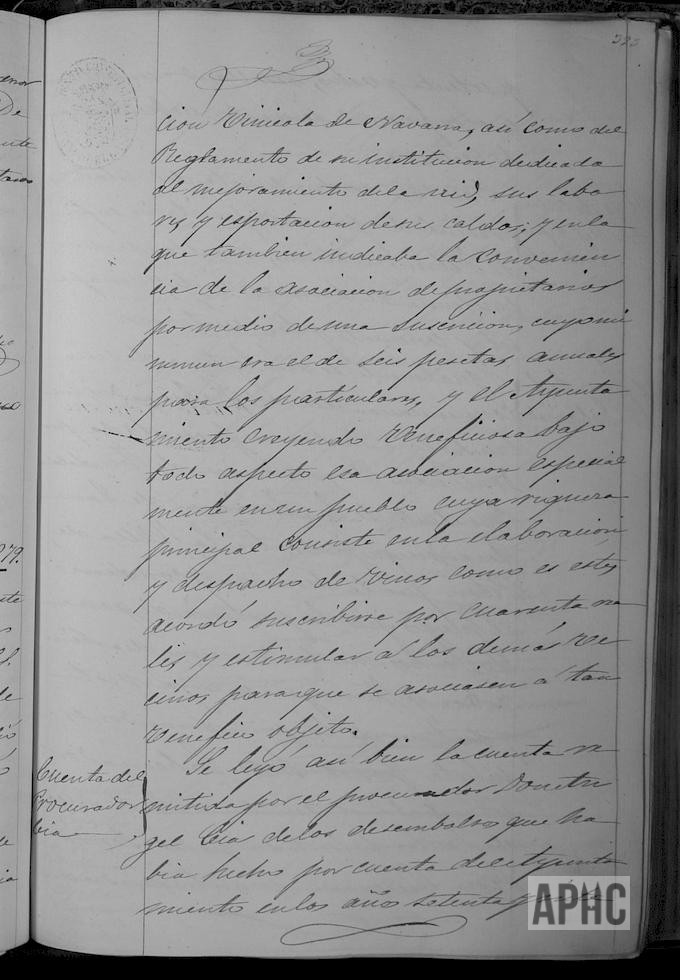 323
cion Vinicola de Navarra, así como del
Reglamento de su institucion dedicada
al mejoramiento de la vid, sus labo
res y esportacion de sus caldos; y en la
que tambien indicaba la convenien
cia de la asociacion de propietarios
por medio de una suscricion, cuyo mi
nimun era el de seis pesetas anuales
para los particulares, y el Ayunta
miento creyendo beneficiosa bajo
todo aspecto esa asociacion especial
mente en un pueblo cuya riqueza
principal consiste en la elaboracion
y despacho de vinos como es este,
acordó suscribirse por cuarenta rea
les y estimular á los demás ve
cinos para que se asociasen á tan
benefico objeto.
Se leyó así bien la cuenta re
mitida por el procurador Don An
gel Cia de los desembolsos que ha
bia hecho por cuenta del Ayunta
miento en los años setenta y
Cuenta del
Procurador
Cia
APHC